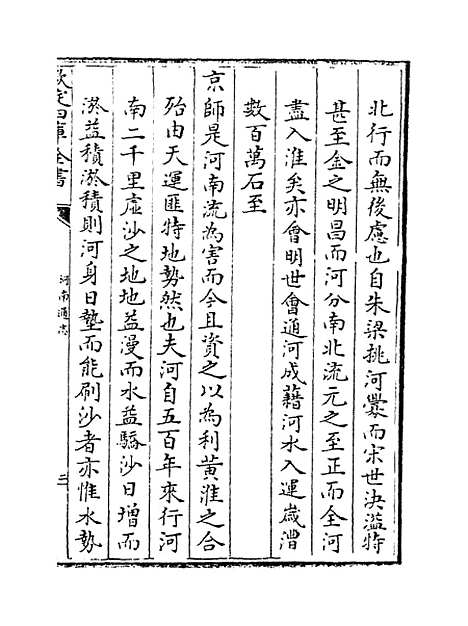 北行而無後慮也自朱梁挑河釁而宋世決溢特
甚至金之明昌而河分南北流元之至正而全河
盡入淮矣亦會明世會通河成藉河水入運歲漕
數百萬石至
京師是河南流為害而今且資之以為利黃淮之合
殆由天運匪特地勢然也夫河自五百年來行河
南二千里虛沙之地地益漫而水益驕沙日增而
淤益積淤積則河身日墊而能刷沙者亦惟水勢
欽定四庫全書
河南通志
三